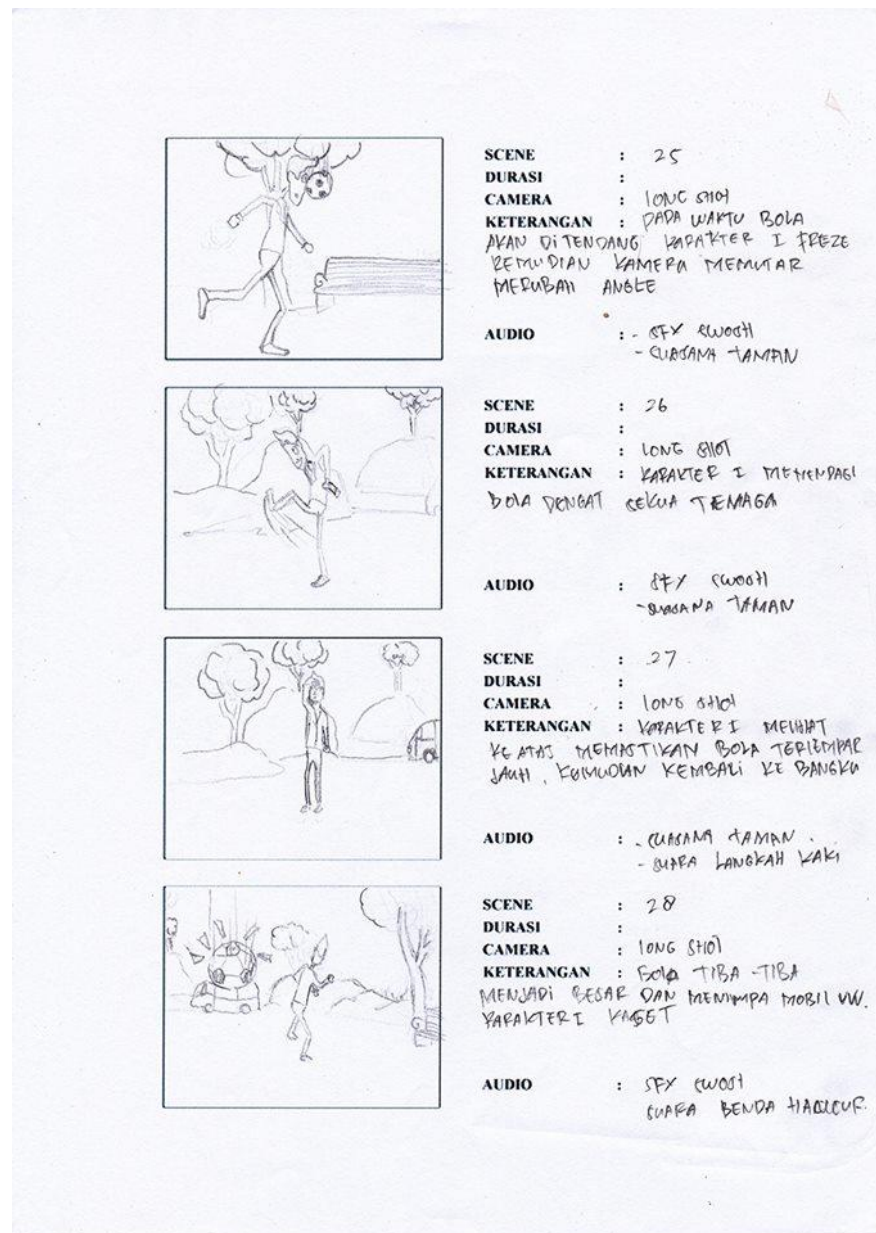 SCENE : 25
DURASI :
CAMERA : LONG SHOT
KETERANGAN : PADA WAKTU BOLA
AKAN DITENDANG KARAKTER I FREZE
KEMUDIAN KAMERA MEMUTAR
MERUBAH ANGLE
AUDIO : - SFX SWOSH
- SUASANA TAMAN
SCENE : 26
DURASI :
CAMERA : LONG SHOT
KETERANGAN : KARAKTER I MENENDAG
BOLA DENGAT SEKUA TENAGA
AUDIO : SFX SWOOSH
- SUASANA TAMAN
SCENE : 27
DURASI :
CAMERA : LONG SHOT
KETERANGAN : KARAKTER I MELIHAT
KE ATAS MEMASTIKAN BOLA TERLEMPAR
JAUH, KEMUDIAN KEMBALI KE BANGKU
AUDIO : - SUASANA TAMAN
- SUARA LANGKAH KAKI
SCENE : 28
DURASI :
CAMERA : LONG SHOT
KETERANGAN : BOLA TIBA-TIBA
MENJADI BESAR DAN MENIMPA MOBIL VW.
KARAKTER I KAGET
AUDIO : SFX SWOSH
SUARA BENDA HANCUR